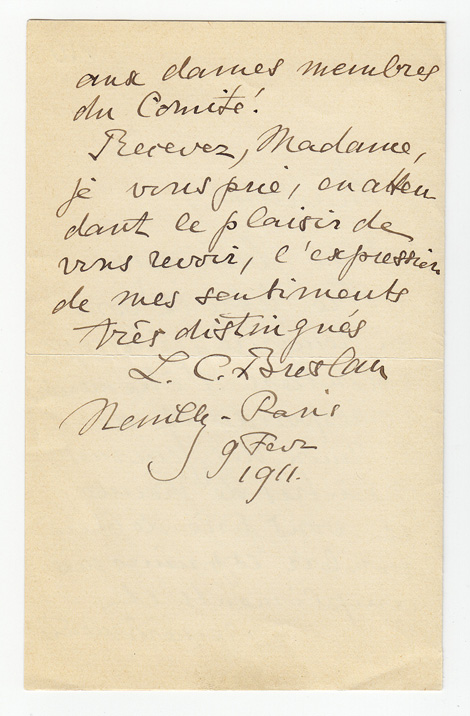 aux dames membres
du Comité!
Recevez, Madame,
je vous prie, en atten
dant le plaisir de
vous revoir, l'expression
de mes sentiments
très distingués
L. C. Breslau
Neuilly - Paris
9 Fevr
1911.